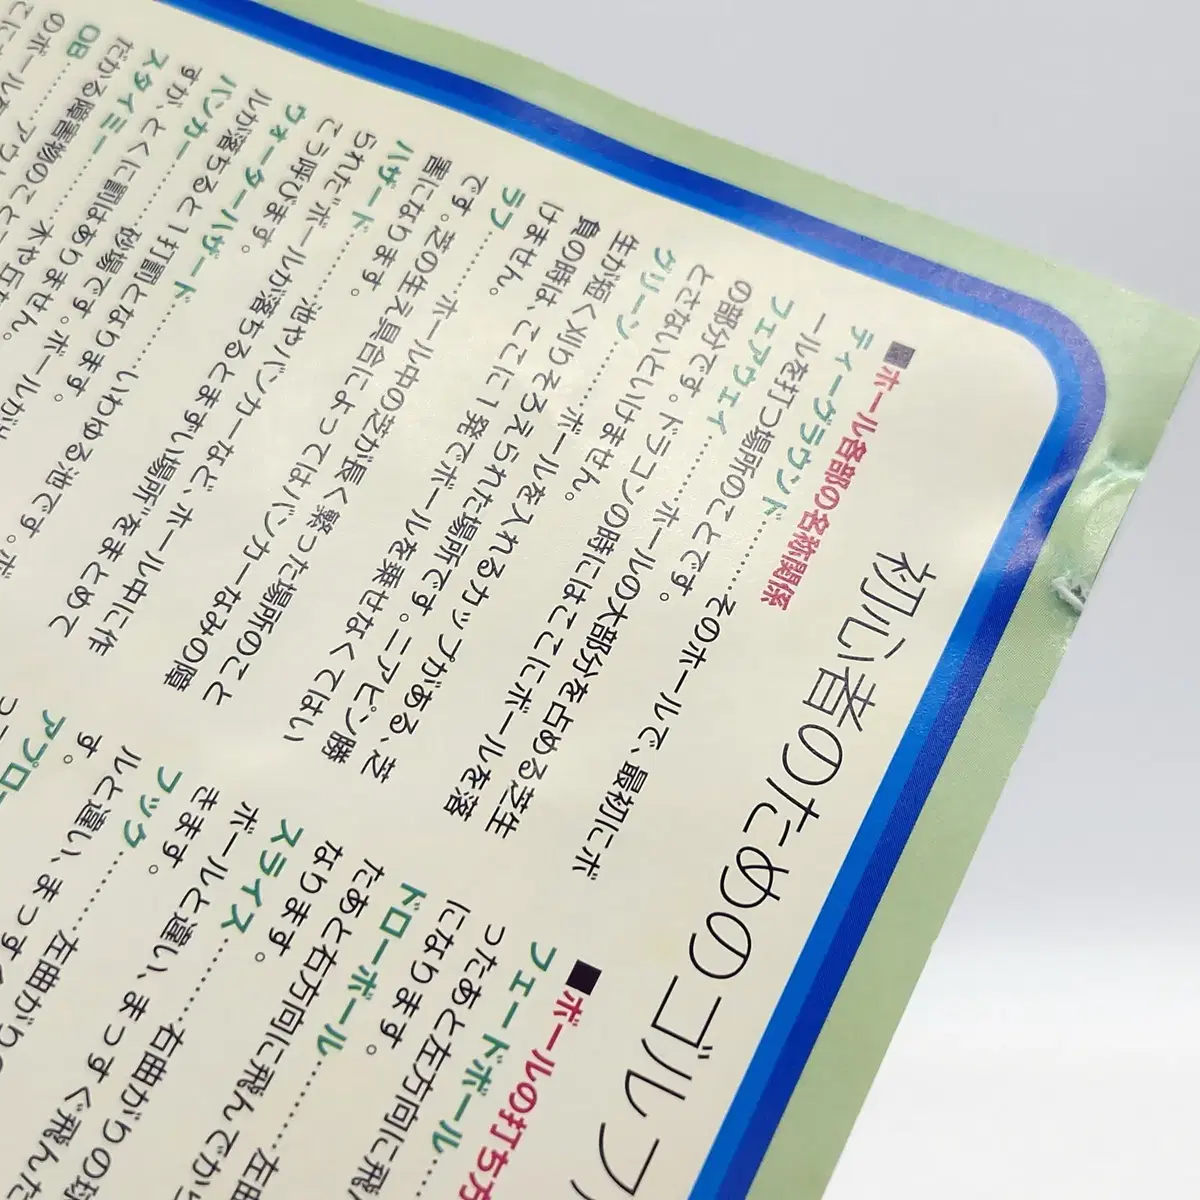 初心者のためのゴルフ
■ホール各部の名称関係
ティーグラウンド……そのホールで、最初にボ
ールを打つ場所のことです。
フェアウェイ……ホールの大部分を占める芝生
の部分です。ドラコンの時にはここにボールを落
とさないといけません。
グリーン……ボールを入れるカップがある、芝
生が短く刈りそろえられた場所です。ニアピン勝
負の時は、ここに1発でボールを乗せなくてはい
けません。
ラフ……ホール中の芝が長く繁った場所のこと
です。芝の生え具合によってはバンカーなみの障
害になります。
ハザード……池やバンカーなど、ホール中に作
られた“ボールが落ちるとまずい場所”をまとめて
こう呼びます。
ウォーターハザード……いわゆる池です。ボ
ルが落ちると1打罰となります。
バンカー……砂場です。ボールが
すが、とくに罰はありません。
スタイミー……木や石
だかる障害物のこと
OB……アウ
のボールを
■ボールの打ち方
フェードボール……
ったあと左方向に飛
になります。
ドローボール……左
たあと右方向に飛んでか
なります。
スライス……右曲がりの球
ボールと違い、まっすぐ飛んだ
きます。
フック……左曲がりの
ルと違い、まっすぐ
す。
アプロー